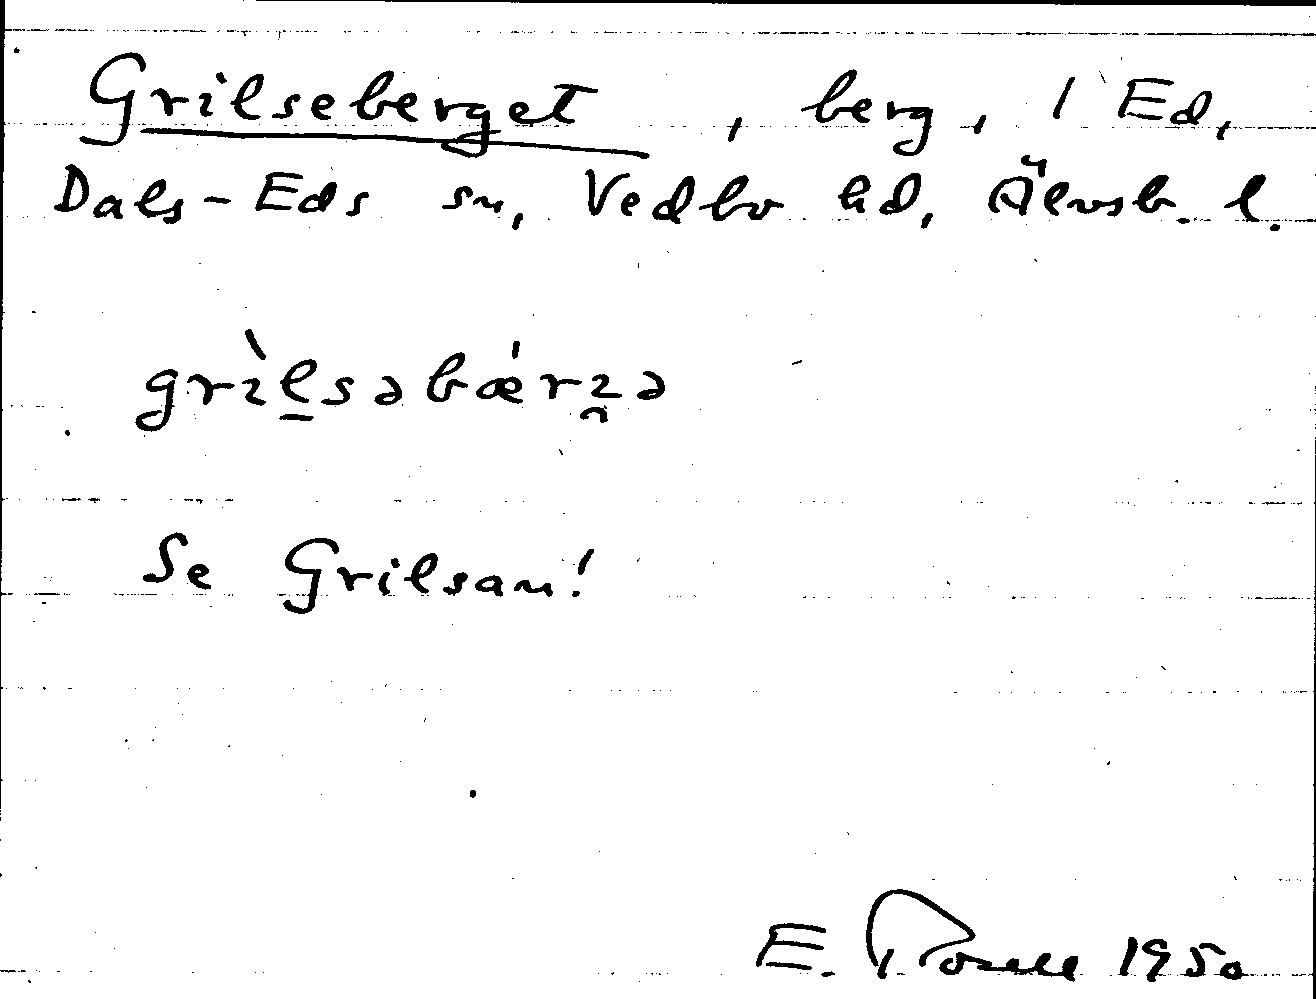 Grilseberget, berg, 1 Ed,
Dals-Eds sn, Vedbo hd, Älvsb. l.
grìl̠səbǽrʒ̑ə
Se Grilsan!
E. Rosell 1950